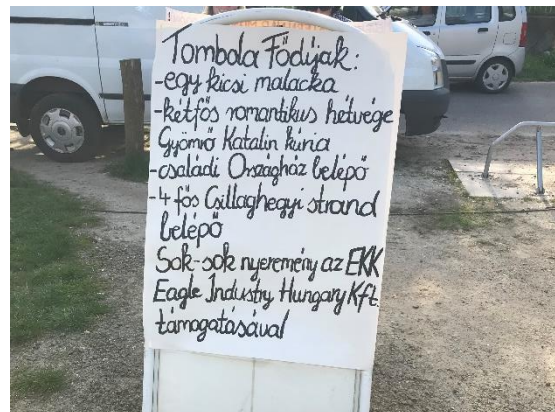 Tombola Fődíjak:
-egy kicsi malacka
-kétfős romantikus hétvége
Gyömrő Katalin kúria
-családi Országház belépő
-4 fős Csillaghegyi strand
belépő
Sok-sok nyeremény az EKK
Eagle Industry Hungary Kft.
támogatásával